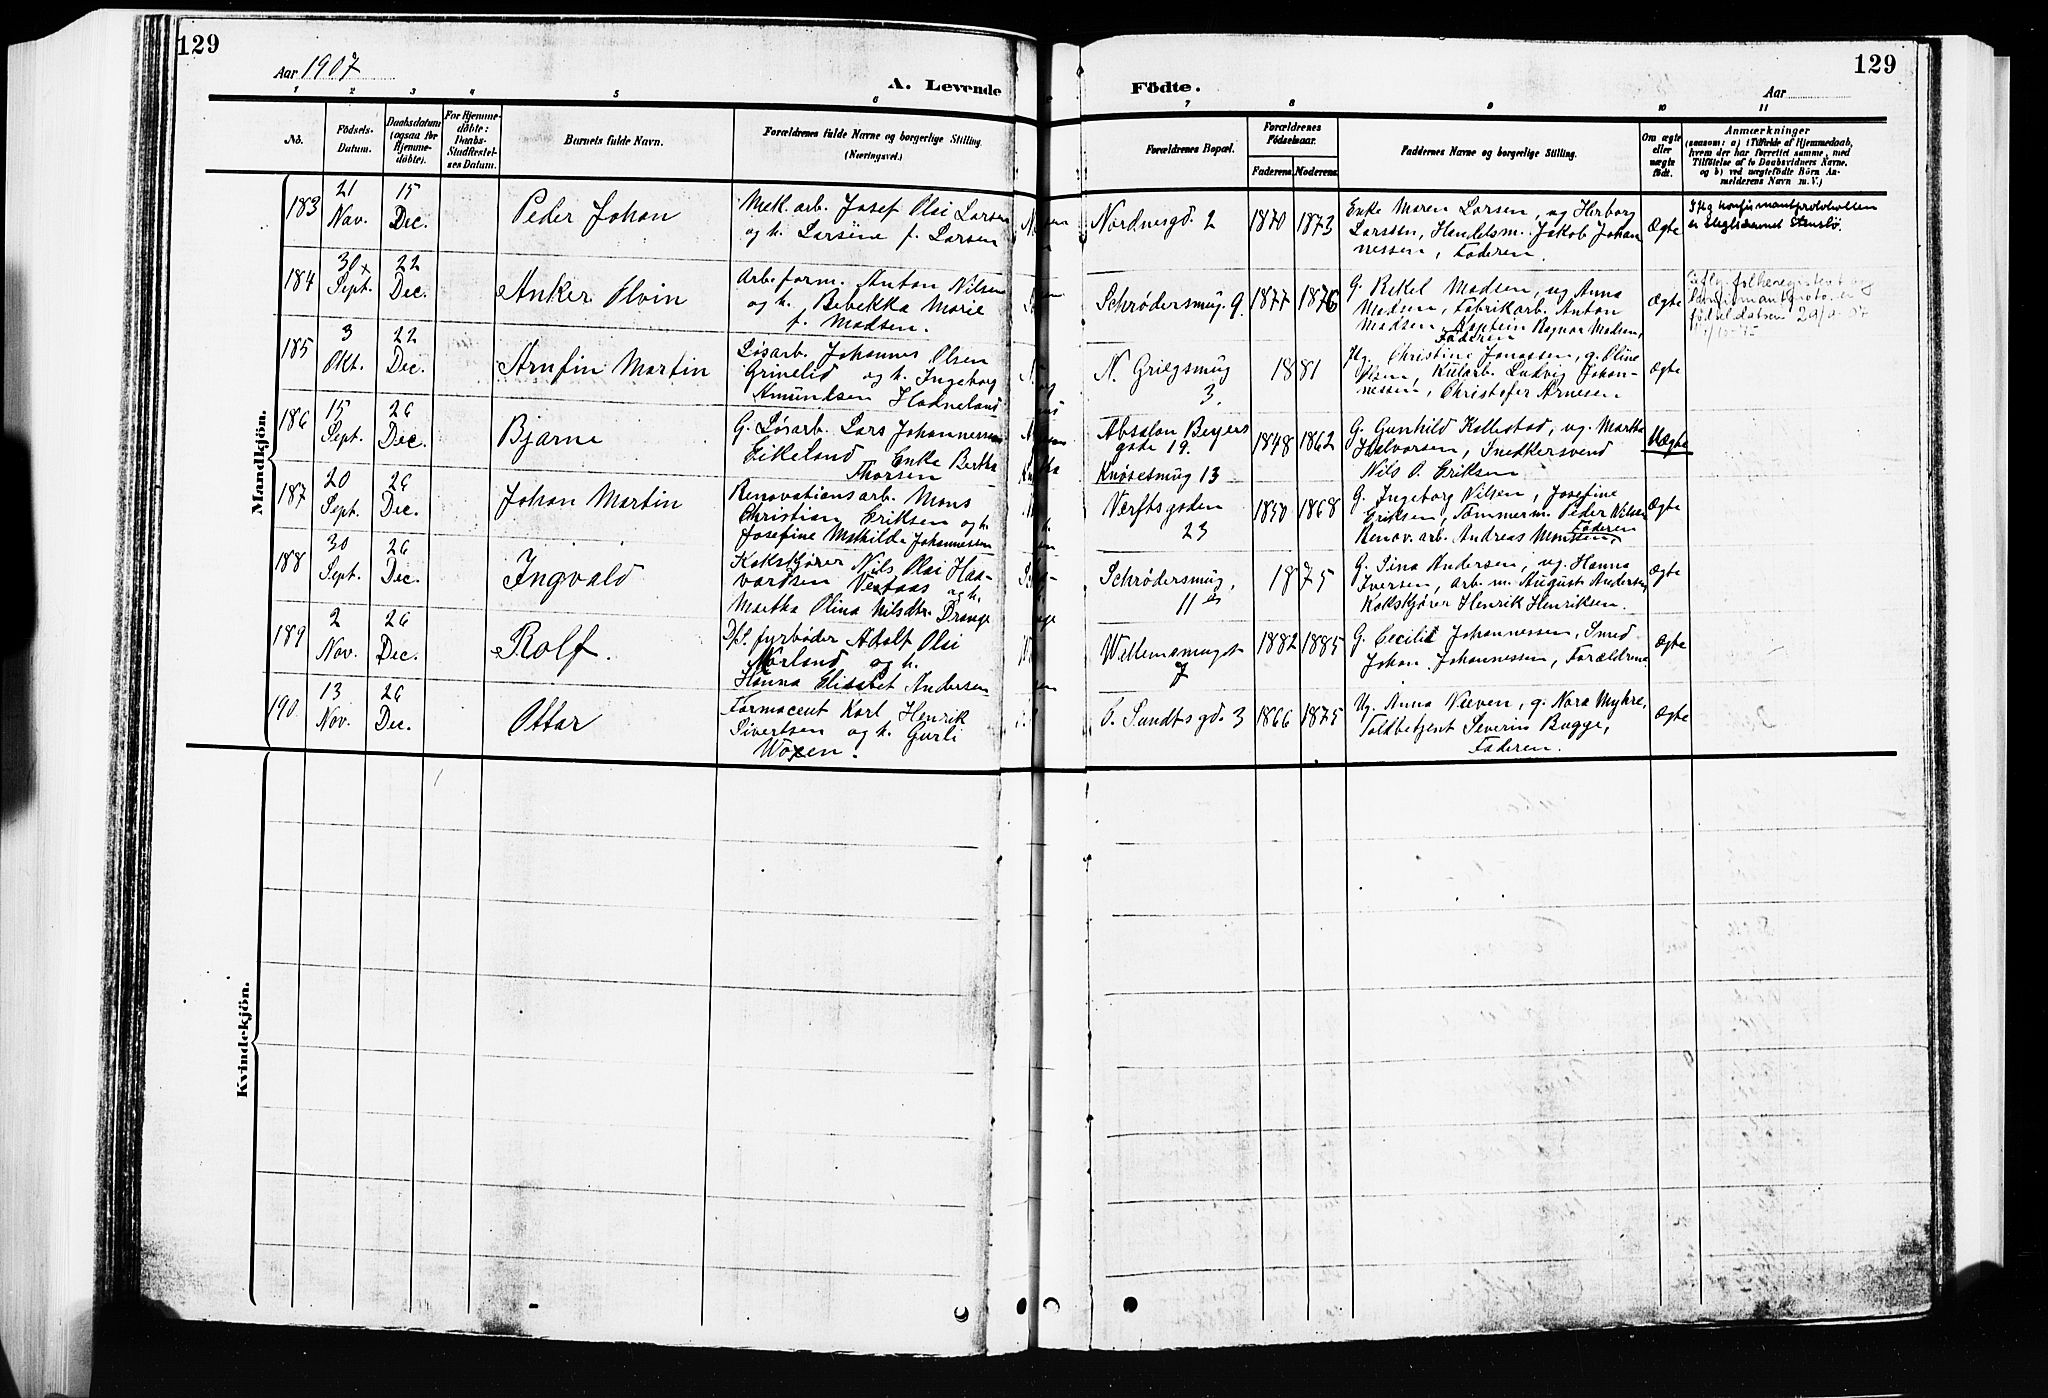 129
129
Aar 1907
A. Levende Födte.
Aar
1 2 3 4 5 6 7 8 9 10 11
No.
Födsels-
Datum.
Daabsdatum
(ogsaa for
Hjemme-
døbte).
For Hjemme-
døbte:
Daabs-
Stadfæstel-
ses Datum.
Barnets fulde Navn.
Forældrenes fulde Navne og borgerlige Stilling.
(Næringsvei.)
Forældrenes Bopæl.
Forældrenes
Födselsaar.
Faderens. Moderens.
Faddernes Navne og borgerlige Stilling.
Om ægte
eller
uægte
födt.
Anmærkninger
(saasom: a) i Tilfælde af Hjemmedaab,
hvem der har forrettet samme, med
Tilføielse af to Daabsvidners Navne.
og b) ved uægtefödte Börn An-
melderens Navn m. V.)
Mandkjön.
183
21
Nov.
15
Dec.
Peder Johan
Mek. arb. Josef Olai Larsen
og h. Larsine f. Larsen
Nordnesgd. 2
1870 1873
Enke Maren Larsen, ug Herborg
Larssen, Handelsm. Jakob Johan
nessen, Faderen.
Ægte
184
30 x
Sept.
22
Dec.
Anker Olvin
Arb. form. Anton Nilsen
og h. Rebekka Marie
f. Madsen.
Schrødersmug. 9.
1877 1876
G. Rekel Madsen, ug Anna
Madsen, Fabrikarb. Anton
Madsen, Kaptein Ragnar Madsen,
Faderen
Ægte
185
3
Okt.
22
Dec.
Arnfin Martin
Løsarb. Johannes Olsen
Grinelid og h. Ingeborg
Amundsen Hodneland
N. Griegsmug
3.
1881
Jfg. Christine Jonassen, g. Oline
Olsen, Kularb. Ludvig Johan-
nessen, Christofer Arnesen
Ægte
186
15
Sept.
26
Dec.
Bjarne
G. Løsarb. Lars Johannessen
Eikeland Enke Bertha
Thorsen
Absalon Beyers
gade 19.
Knøsesmug 13
1848 1862
G. Gunhild Kallestad, ug. Martha
Halvorsen, Snedkersvend
Nils O. Eriksen
Uægte
187
20
Sept.
26
Dec.
Johan Martin
Renovationsarb. Mons
Christian Eriksen og h.
Josefine Mathilde Johannessen
Verftsgaden
23
1850 1868
G. Ingeborg Nilsen, Josefine
Eriksen, Tømmerm. Peder Nilsen
Renov. arb. Andreas Monsen, Faderen
Ægte
188
30
Sept.
26
Dec.
Ingvald
Kakskjører Nils Olai Haa-
vardsen Vestaas og h.
Martha Olina Nilsdtr. Drange
Schrødersmug,
11 es
1875
G. Sina Andersen, ug. Hanna
Iversen, arb. m. August Andersen
Kakskjører Henrik Henriksen.
Ægte
189
2
Nov.
26
Dec.
Rolf.
Dpl. fyrbøder Adolf Olai
Norland og h.
Hanna Elisabet Andersen
Willemsmuget
7
1882 1885
G. Cecilie Johannessen, Smed
Johan Johannessen, Forældrene
Ægte
190
13
Nov.
26
Dec.
Ottar
Farmaceut Karl Henrik
Sivertsen og h. Gurli
Woxen.
P. Sundtsgd. 3
1866 1875
Ug. Anna Nieven, g. Nora Myhre,
Toldbetjent Severin Bugge,
Faderen.
Ægte
Kvindekjön.